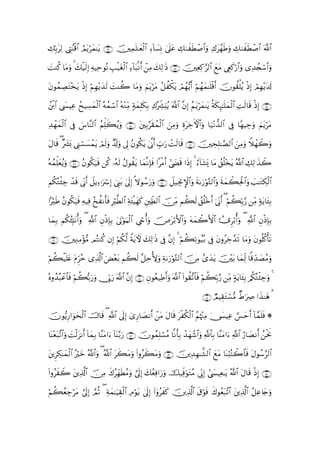 ٱللَّهَ ٱصْطَفَىٰكِ وَطَهَّرَكِ وَٱصْطَفَىٰكِ عَلَىٰ نِسَآءِ ٱلْعَـٰلَمِينَ ۝٤٢ يَـٰمَرْيَمُ ٱقْنُتِى لِرَبِّكِ
وَٱسْجُدِى وَٱرْكَعِى مَعَ ٱلرَّٰكِعِينَ ۝٤٣ ذَٰلِكَ مِنْ أَنۢبَآءِ ٱلْغَيْبِ نُوحِيهِ إِلَيْكَ ۚ وَمَا كُنتَ
لَدَيْهِمْ إِذْ يُلْقُونَ أَقْلَـٰمَهُمْ أَيُّهُمْ يَكْفُلُ مَرْيَمَ وَمَا كُنتَ لَدَيْهِمْ إِذْ يَخْتَصِمُونَ
۝٤٤ إِذْ قَالَتِ ٱلْمَلَـٰٓئِكَةُ يَـٰمَرْيَمُ إِنَّ ٱللَّهَ يُبَشِّرُكِ بِكَلِمَةٍ مِّنْهُ ٱسْمُهُ ٱلْمَسِيحُ عِيسَى ٱبْنُ
مَرْيَمَ وَجِيهًا فِى ٱلدُّنْيَا وَٱلْـَٔاخِرَةِ وَمِنَ ٱلْمُقَرَّبِينَ ۝٤٥ وَيُكَلِّمُ ٱلنَّاسَ فِى ٱلْمَهْدِ
وَكَهْلًا وَمِنَ ٱلصَّـٰلِحِينَ ۝٤٦ قَالَتْ رَبِّ أَنَّىٰ يَكُونُ لِى وَلَدٌ وَلَمْ يَمْسَسْنِى بَشَرٌ ۖ قَالَ
كَذَٰلِكِ ٱللَّهُ يَخْلُقُ مَا يَشَآءُ ۚ إِذَا قَضَىٰٓ أَمْرًا فَإِنَّمَا يَقُولُ لَهُۥ كُن فَيَكُونُ ۝٤٧ وَيُعَلِّمُهُ
ٱلْكِتَـٰبَ وَٱلْحِكْمَةَ وَٱلتَّوْرَىٰةَ وَٱلْإِنجِيلَ ۝٤٨ وَرَسُولًا إِلَىٰ بَنِىٓ إِسْرَٰٓءِيلَ أَنِّى قَدْ جِئْتُكُم
بِـَٔايَةٍ مِّن رَّبِّكُمْ ۖ أَنِّىٓ أَخْلُقُ لَكُم مِّنَ ٱلطِّينِ كَهَيْـَٔةِ ٱلطَّيْرِ فَأَنفُخُ فِيهِ فَيَكُونُ طَيْرًۢا
بِإِذْنِ ٱللَّهِ ۖ وَأُبْرِئُ ٱلْأَكْمَهَ وَٱلْأَبْرَصَ وَأُحْىِ ٱلْمَوْتَىٰ بِإِذْنِ ٱللَّهِ ۖ وَأُنَبِّئُكُم بِمَا
تَأْكُلُونَ وَمَا تَدَّخِرُونَ فِى بُيُوتِكُمْ ۚ إِنَّ فِى ذَٰلِكَ لَـَٔايَةً لَّكُمْ إِن كُنتُم مُّؤْمِنِينَ ۝٤٩
وَمُصَدِّقًا لِّمَا بَيْنَ يَدَىَّ مِنَ ٱلتَّوْرَىٰةِ وَلِأُحِلَّ لَكُم بَعْضَ ٱلَّذِى حُرِّمَ عَلَيْكُمْ
ۚ وَجِئْتُكُم بِـَٔايَةٍ مِّن رَّبِّكُمْ فَٱتَّقُوا۟ ٱللَّهَ وَأَطِيعُونِ ۝٥٠ إِنَّ ٱللَّهَ رَبِّى وَرَبُّكُمْ فَٱعْبُدُوهُ
ۗ هَـٰذَا صِرَٰطٌ مُّسْتَقِيمٌ ۝٥١
۞ فَلَمَّآ أَحَسَّ عِيسَىٰ مِنْهُمُ ٱلْكُفْرَ قَالَ مَنْ أَنصَارِىٓ إِلَى ٱللَّهِ ۖ قَالَ ٱلْحَوَارِيُّونَ
نَحْنُ أَنصَارُ ٱللَّهِ ءَامَنَّا بِٱللَّهِ وَٱشْهَدْ بِأَنَّا مُسْلِمُونَ ۝٥٢ رَبَّنَآ ءَامَنَّا بِمَآ أَنزَلْتَ وَٱتَّبَعْنَا
ٱلرَّسُولَ فَٱكْتُبْنَا مَعَ ٱلشَّـٰهِدِينَ ۝٥٣ وَمَكَرُوا۟ وَمَكَرَ ٱللَّهُ ۖ وَٱللَّهُ خَيْرُ ٱلْمَـٰكِرِينَ
۝٥٤ إِذْ قَالَ ٱللَّهُ يَـٰعِيسَىٰٓ إِنِّى مُتَوَفِّيكَ وَرَافِعُكَ إِلَىَّ وَمُطَهِّرُكَ مِنَ ٱلَّذِينَ كَفَرُوا۟
وَجَاعِلُ ٱلَّذِينَ ٱتَّبَعُوكَ فَوْقَ ٱلَّذِينَ كَفَرُوٓا۟ إِلَىٰ يَوْمِ ٱلْقِيَـٰمَةِ ۖ ثُمَّ إِلَىَّ مَرْجِعُكُمْ